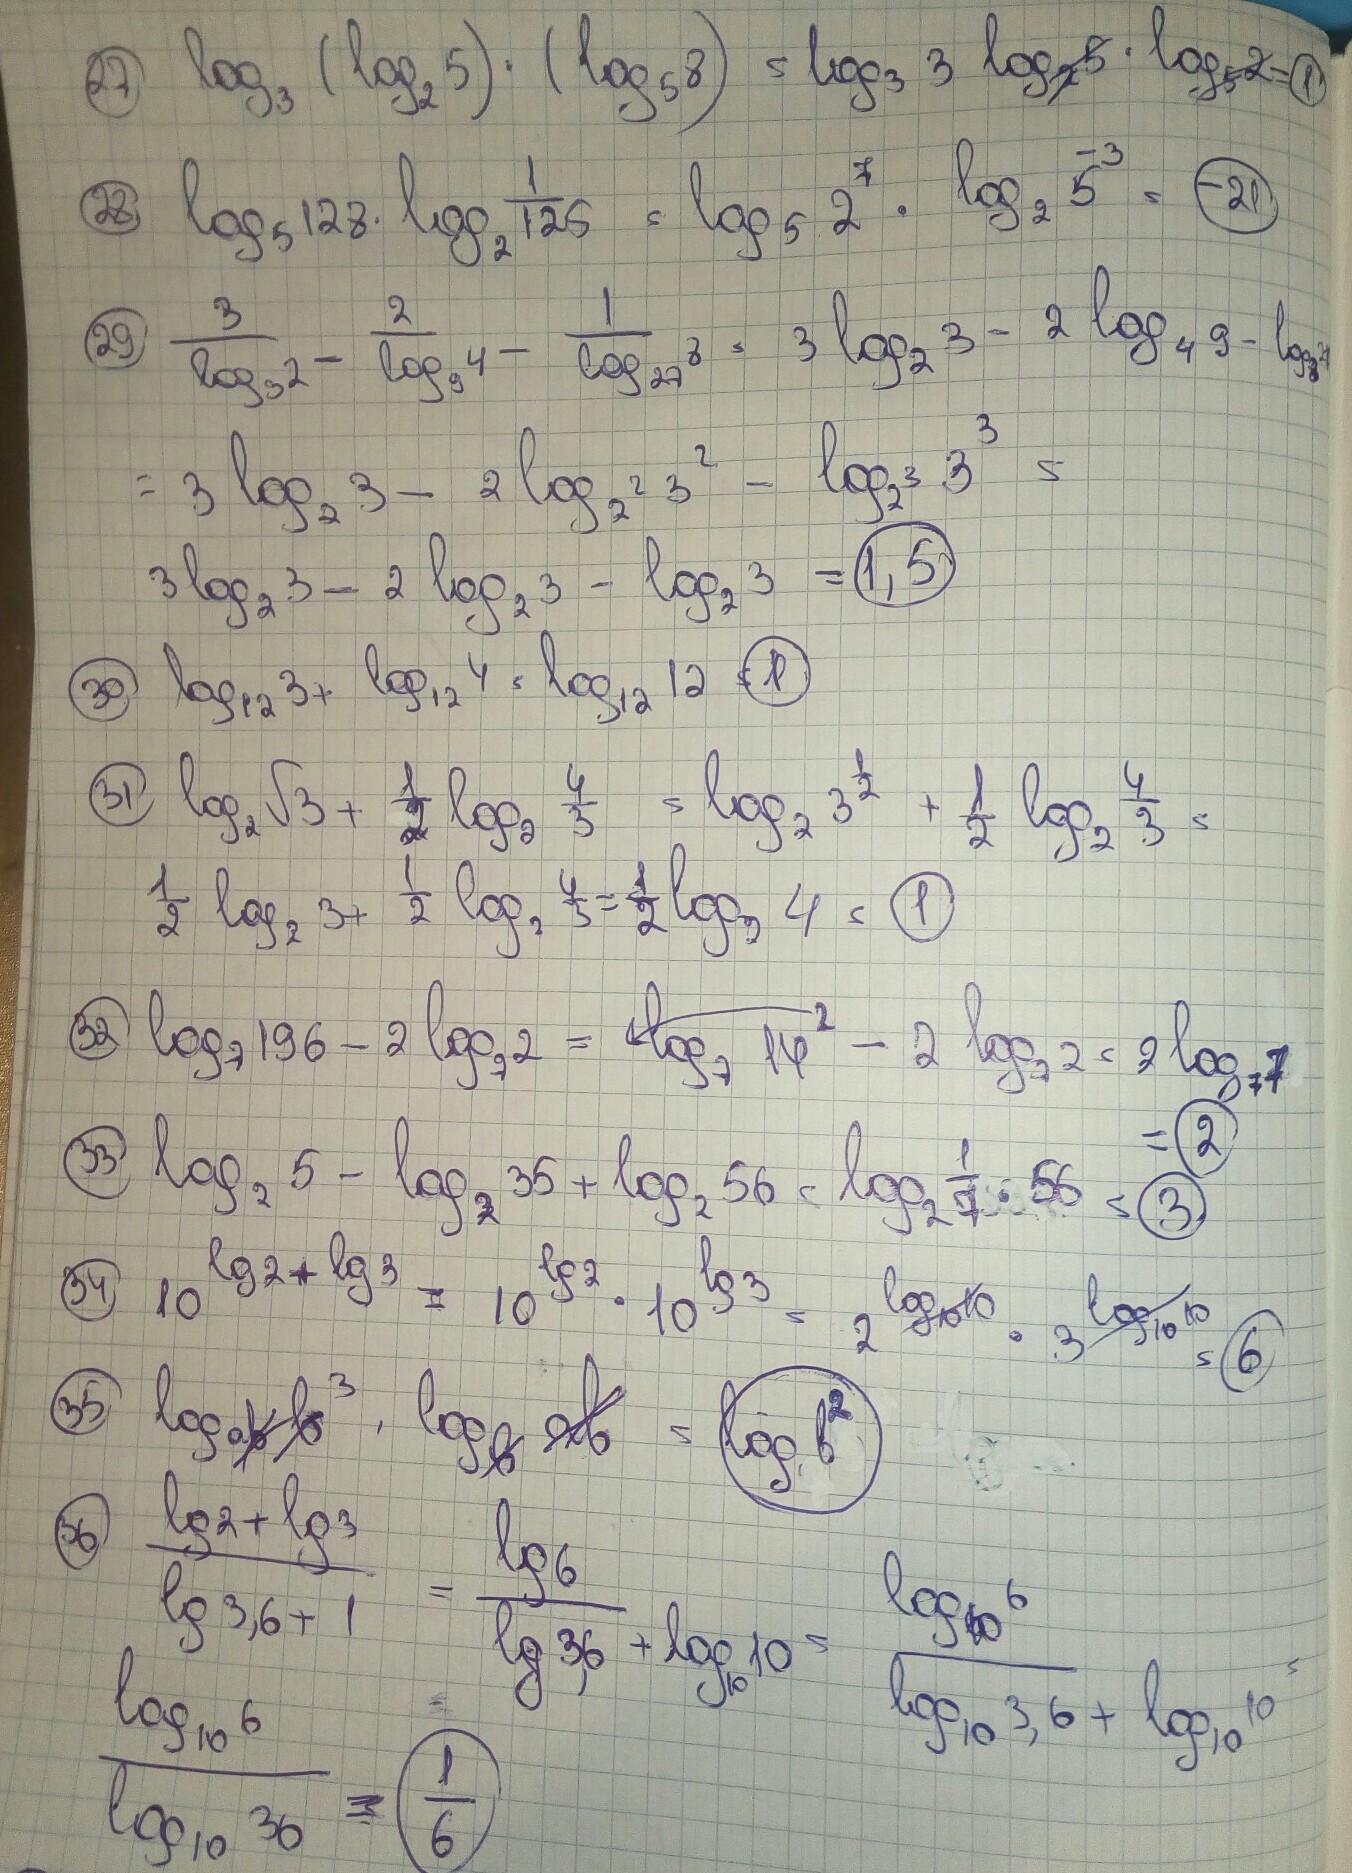 27 log₃ (log₂5)·(log₅8) = log₃ 3 log₂5 · log₅2 = 1
28 log₅128 · log₂ 1/125 = log₅ 2⁷ · log₂ 5⁻³ = -21
29 3/log₃2 - 2/log₉4 - 1/log₂₇8 = 3 log₂3 - 2 log₄9 - log₈27
= 3 log₂3 - 2 log₂² 3² - log₂³ 3³ =
3 log₂3 - 2 log₂3 - log₂3 = 1,5
30 log₁₂3 + log₁₂4 = log₁₂12 = 1
31 log₂√3 + 1/2 log₂ 4/3 = log₂ 3^1/2 + 1/2 log₂ 4/3 =
1/2 log₂3 + 1/2 log₂ 4/3 = 1/2 log₂ 4 = 1
32 log₇196 - 2 log₇2 = log₇ 14² - 2 log₇2 = 2 log₇7
= 2
33 log₂ 5 - log₂ 35 + log₂ 56 = log₂ 1/7 · 56 = 3
34 10^lg2+lg3 = 10^lg2 · 10^lg3 = 2^log₁₀10 · 3^log₁₀10 = 6
35 log_ab b³ · log_b ab = log b²
36 lg2+lg3 / lg3,6+1 = lg6 / lg3,6 + log₁₀10 = log₁₀6 / log₁₀3,6 + log₁₀10 =
log₁₀6 / log₁₀36 = 1/6